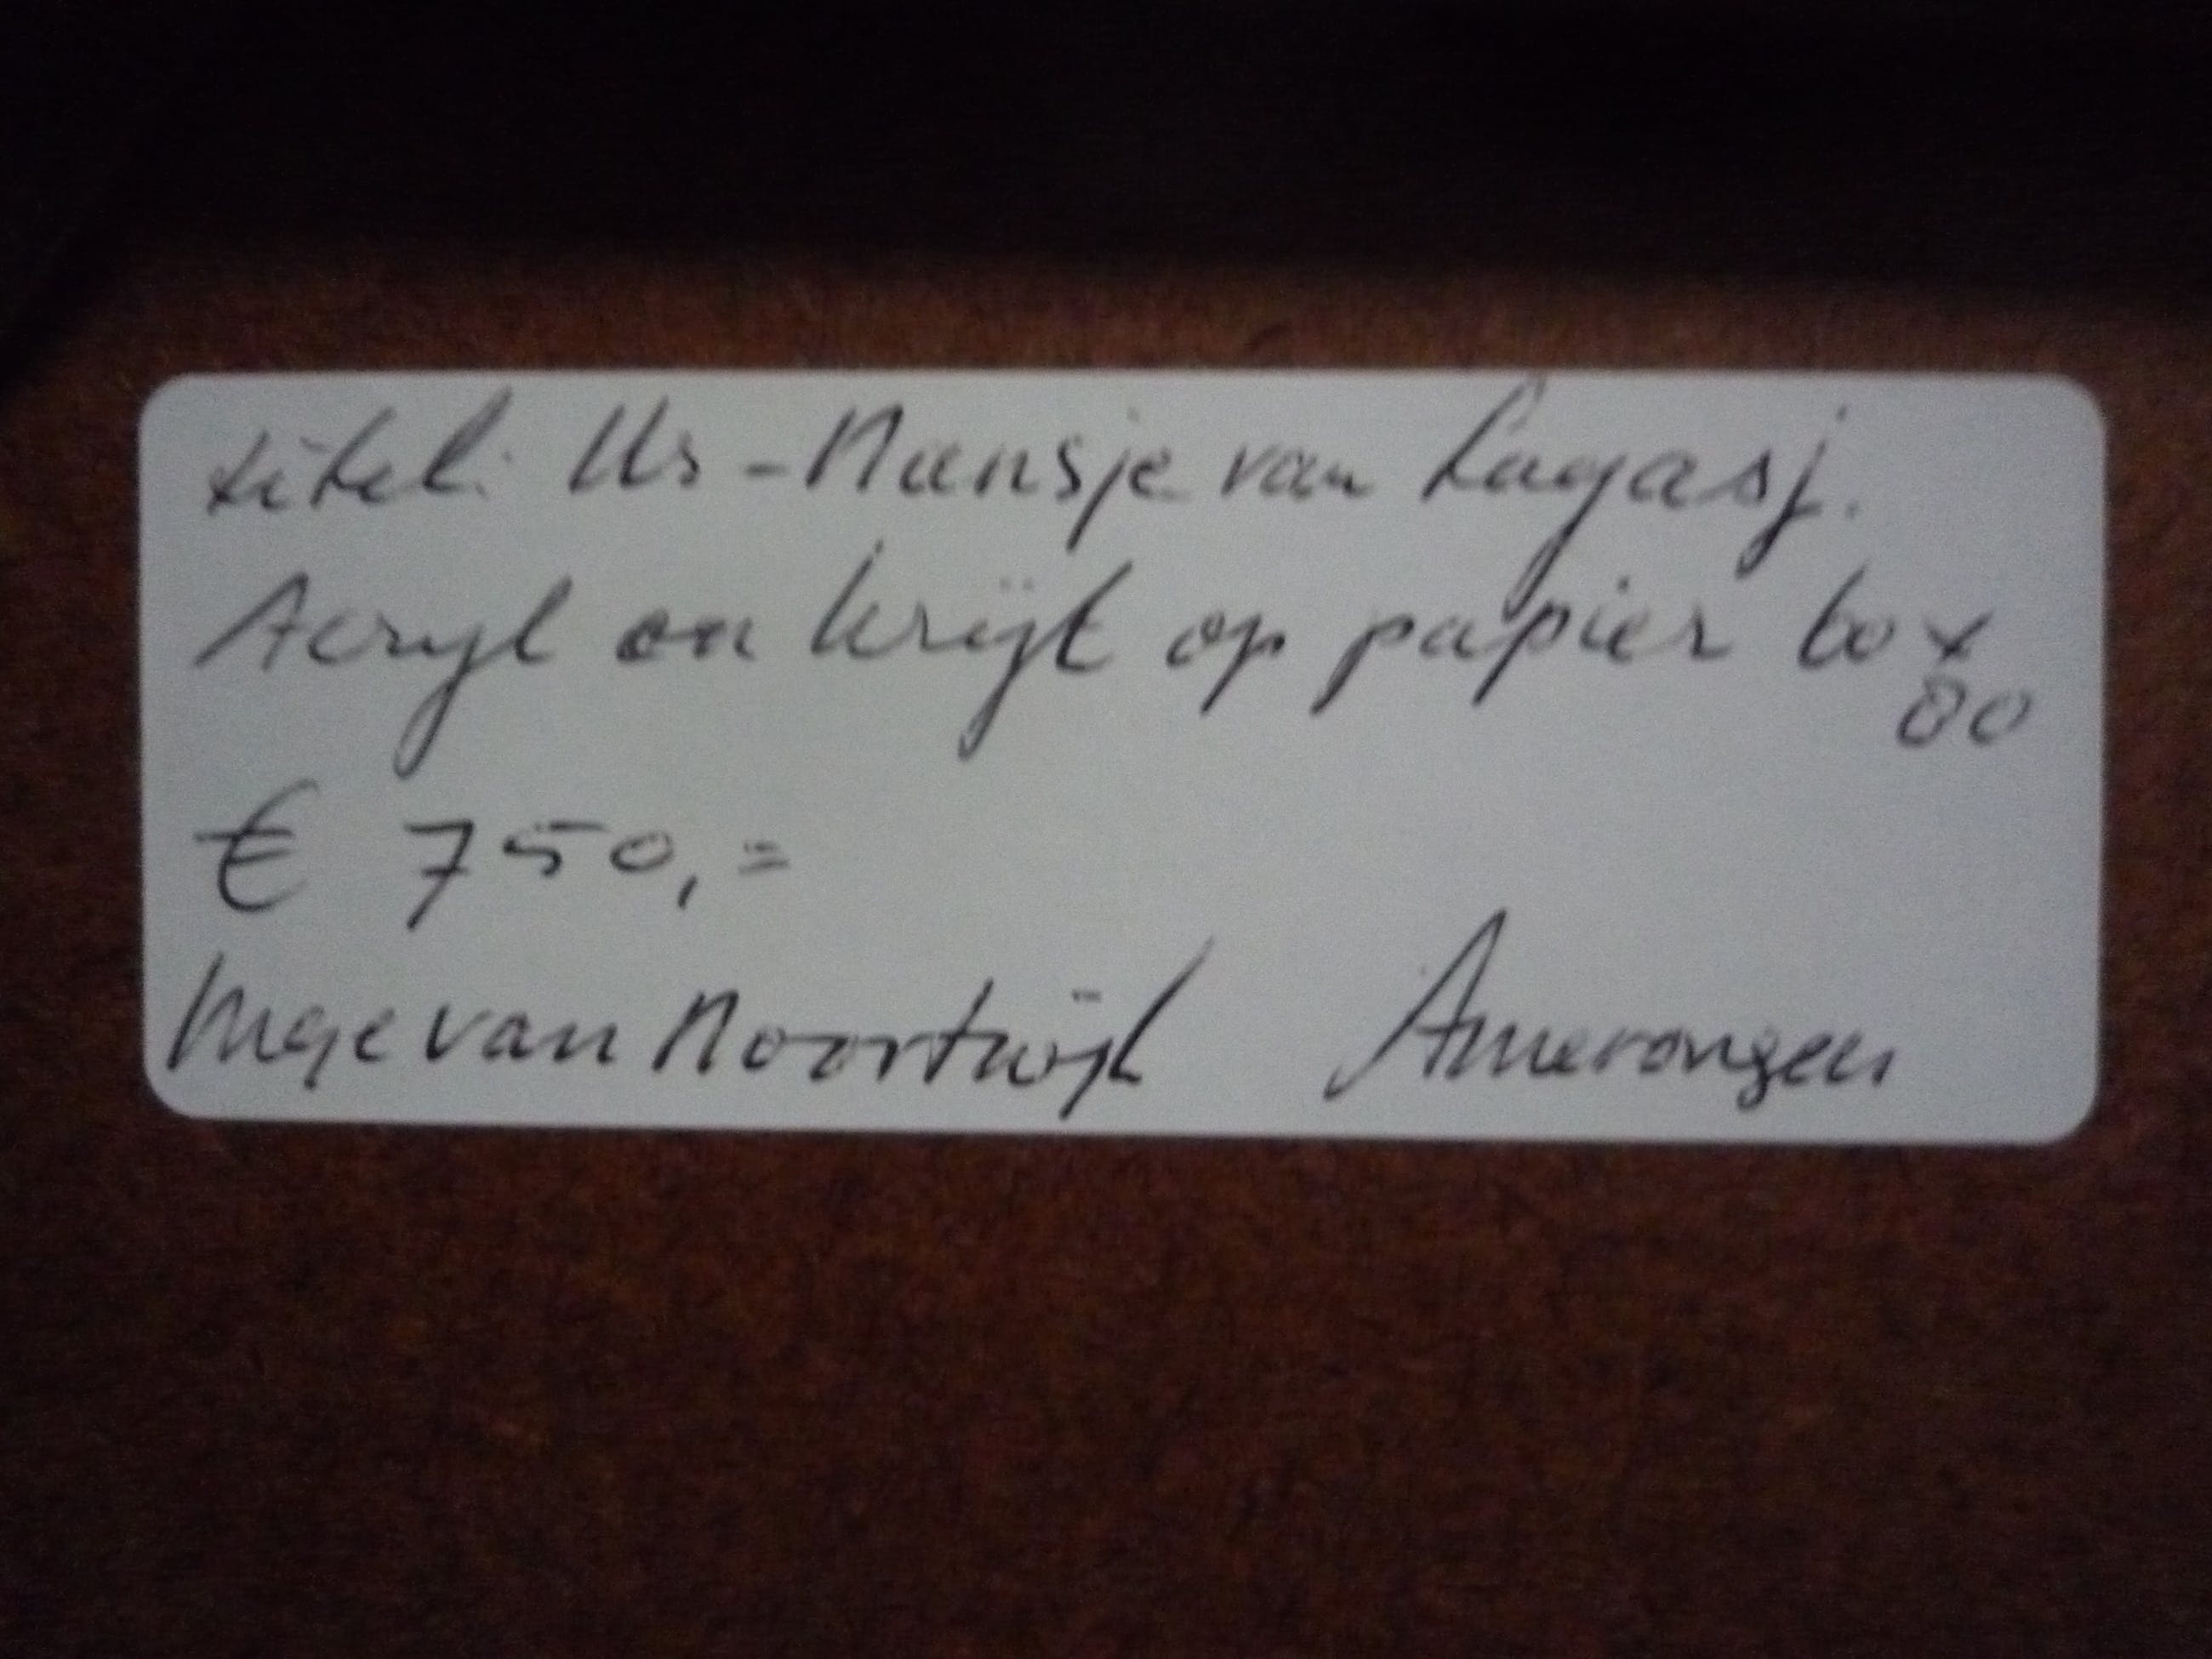 titel: Us-Mansje van Lagasj.
Acryl en krijt op papier 60 x
80
€ 750,=
Inge van Noortwijk Amerongen